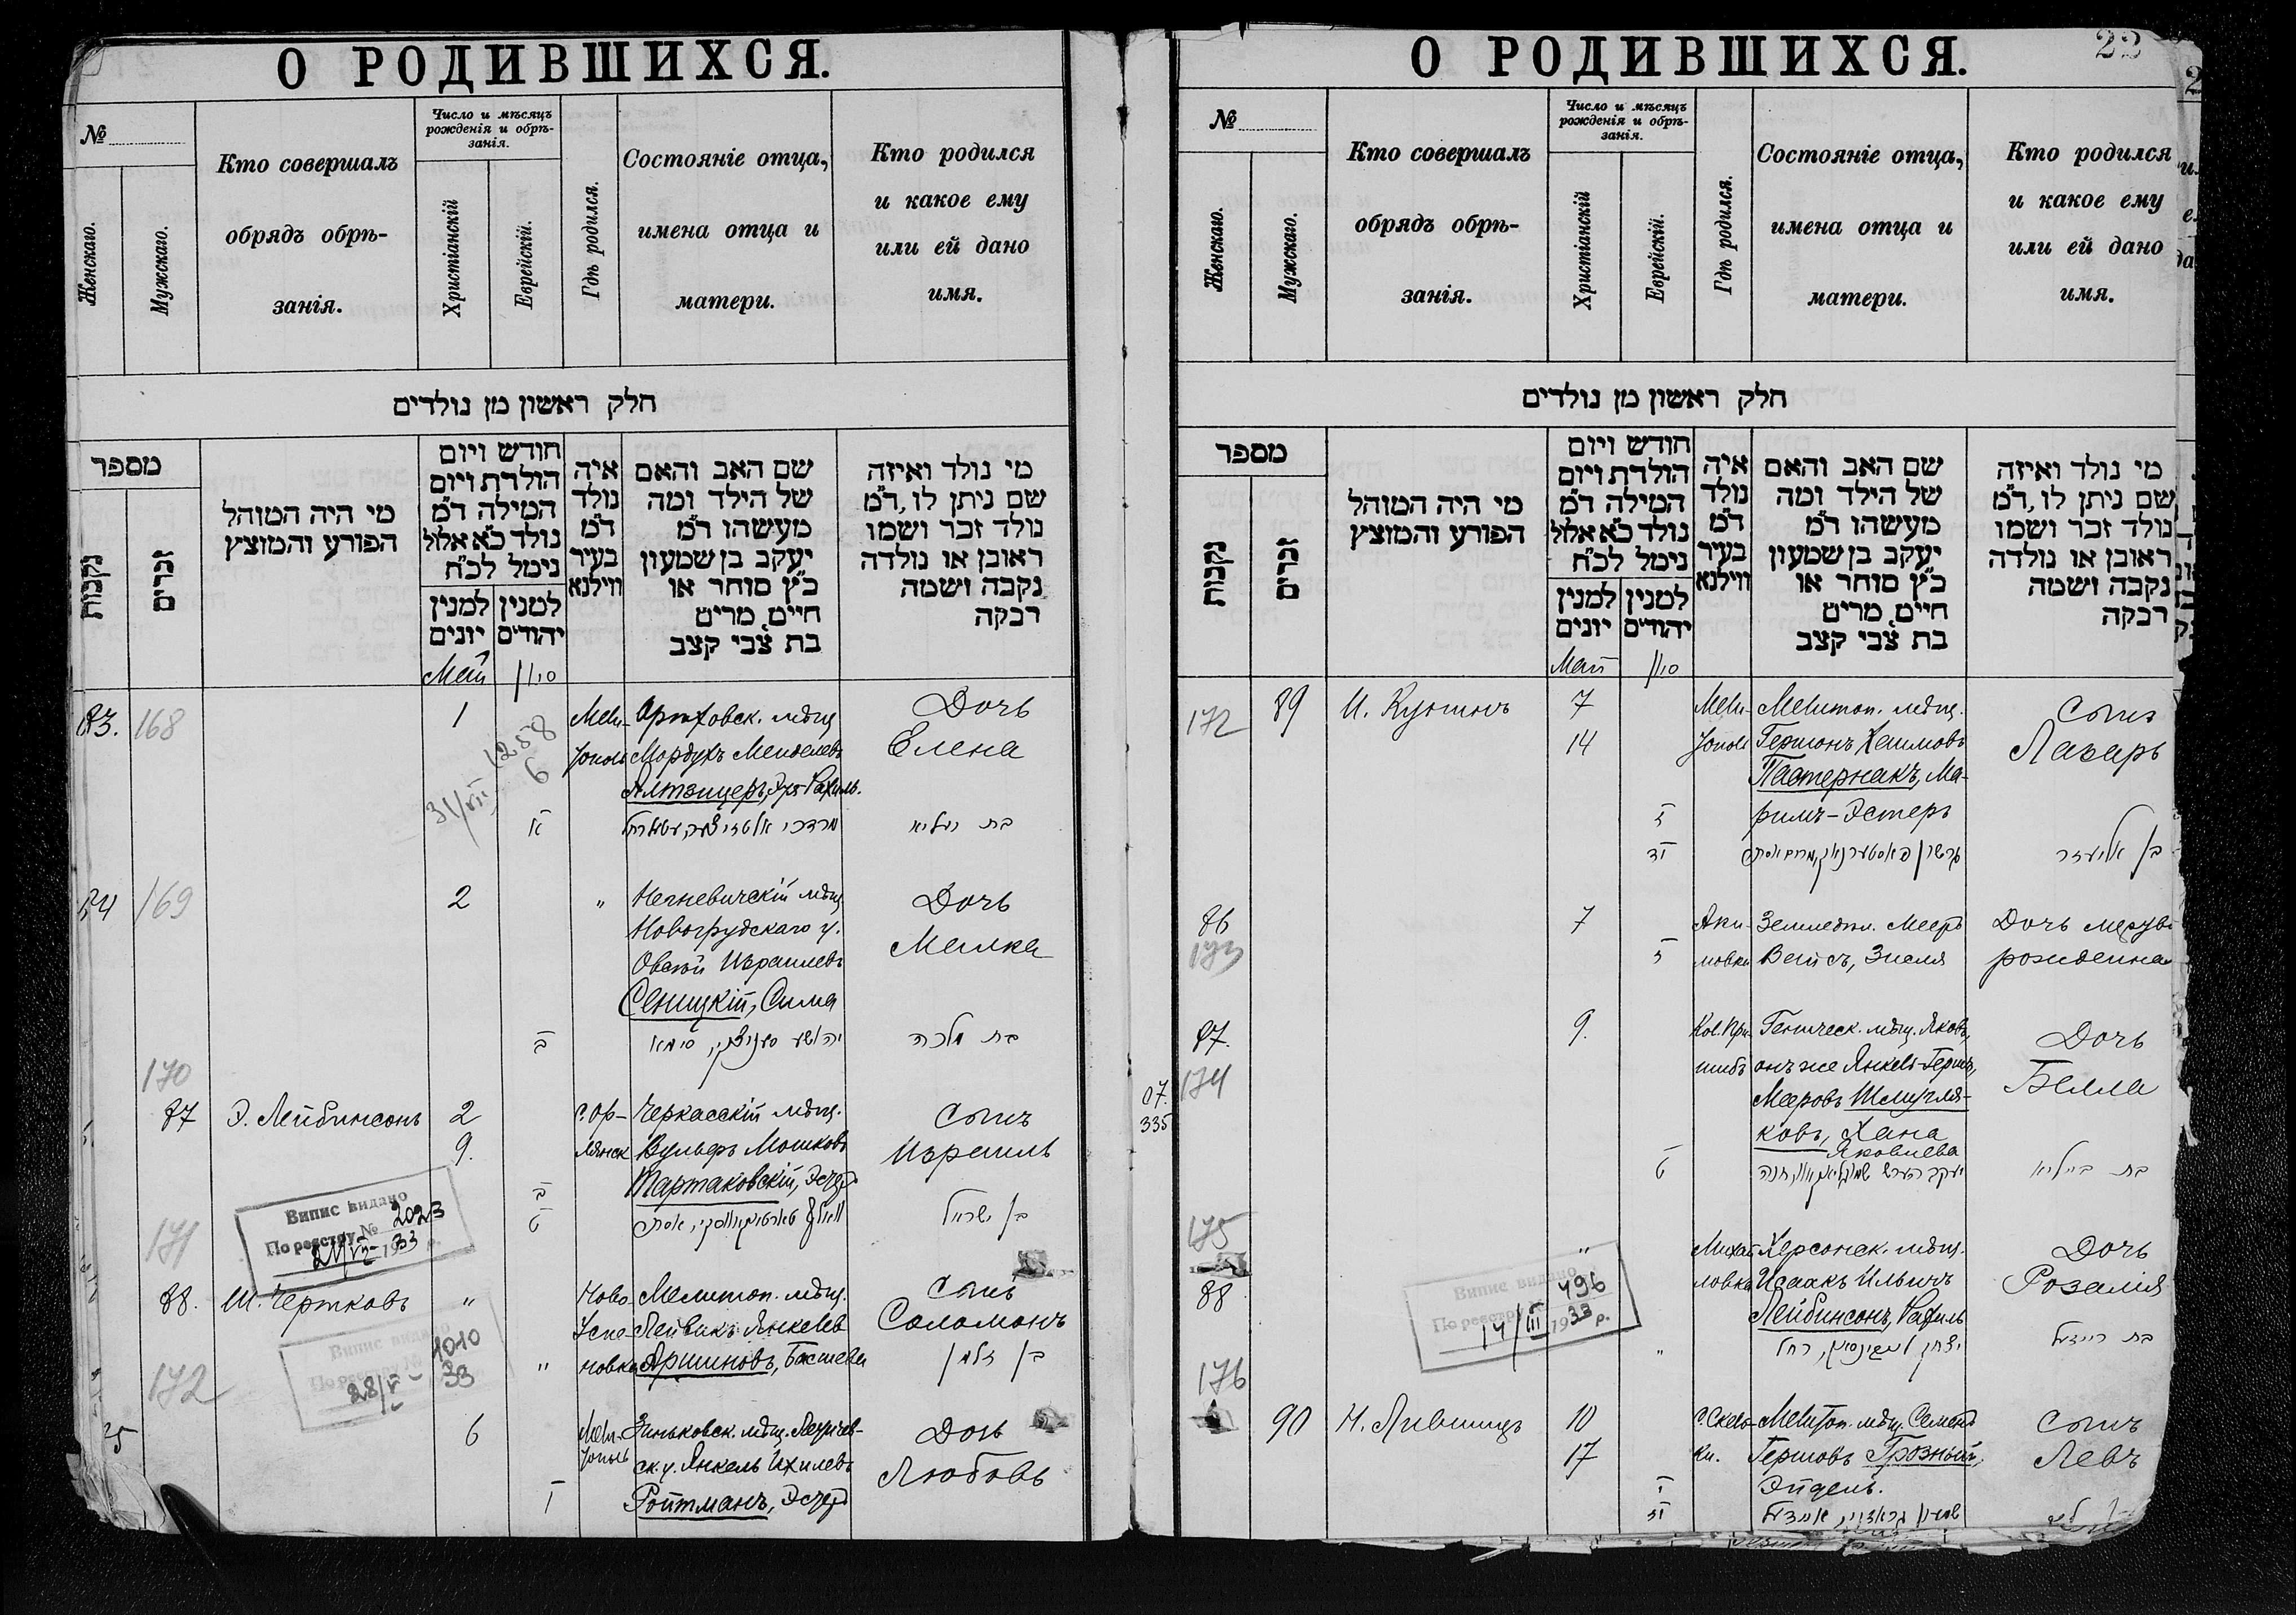 О РОДИВШИХСЯ.
№
Женскаго.
Мужскаго.
Кто совершалъ
обрядъ обрѣ-
занія.
Число и мѣсяцъ
рожденія и обрѣ-
занія.
Христіанскій
Еврейскій.
Гдѣ родился.
Состояніе отца,
имена отца и
матери.
Кто родился
и какое ему
или ей дано
имя.
חלק ראשון מן נולדים
מספר
נקבות
זכרים
מי היה המוהל
הפורע והמוצץ
חודש ויום
הולדת ויום
המילה ד"מ
נולד כ"א אלול
נימל לכ"ח
למנין
יונים
למנין
יהודים
איה
נולד
ד"מ
בעיר
ווילנא
שם האב והאם
של הילד ומה
מעשהו ד"מ
יעקב בן שמעון
כ"ץ סוחר או
חיים, מרים
בת צבי קצב
מי נולד ואיזה
שם ניתן לו, ד"מ
נולד זכר ושמו
ראובן או נולדה
נקבה ושמה
רבקה
Май
סיון
83. 168
1
Мели-
тополь
Мордухъ Менделевъ
Альтзицеръ,
Дочь
Елена
1258
6
31/VII
א
בת
84 169
2
"
мѣщ.
Новогрудскаго у.
Овсѣй Израилевъ
Сеницкій, Сима
Дочь
Малка
ב
יהושע סעניצקי, סימא
בת מלכה
170
87 Э. Лейбинсонъ
2
9.
С. Ор-
лянск
Черкасскій мѣщ.
Вульфъ Мошковъ
Тартаковскій, Эстеръ
Сынъ
Израиль
ב
ט
בן ישראל
Випис видано
По реєстру № 2023
21/VII 1933 р.
171
88. Ш. Чертковъ
"
Ново-
Успе-
новка
Мелитоп. мѣщ.
Лейвикъ Янкелев
Аршиновъ, Басшева
Сынъ
Соломонъ
"
בן זלמן
Випис видано
По реєстру № 1010
28/V 33
172
85
6
Мели-
тополь
Зиньковск. мѣщ. Летичев-
ск. у. Янкель Ихилевъ
Ройтманъ, Эстеръ
Дочь
Любовь
ו
22
О РОДИВШИХСЯ.
№
Женскаго.
Мужскаго.
Кто совершалъ
обрядъ обрѣ-
занія.
Число и мѣсяцъ
рожденія и обрѣ-
занія.
Христіанскій
Еврейскій.
Гдѣ родился.
Состояніе отца,
имена отца и
матери.
Кто родился
и какое ему
или ей дано
имя.
חלק ראשון מן נולדים
מספר
נקבות
זכרים
מי היה המוהל
הפורע והמוצץ
חודש ויום
הולדת ויום
המילה ד"מ
נולד כ"א אלול
נימל לכ"ח
למנין
יונים
למנין
יהודים
איה
נולד
ד"מ
בעיר
ווילנא
שם האב והאם
של הילד ומה
מעשהו ד"מ
יעקב בן שמעון
כ"ץ סוחר או
חיים, מרים
בת צבי קצב
מי נולד ואיזה
שם ניתן לו, ד"מ
נולד זכר ושמו
ראובן או נולדה
נקבה ושמה
רבקה
Май
סיון
172 89
7
14
Мели-
тополь
Мелитоп. мѣщ.
Гершонъ Хаимовъ
Пастернакъ, Ма-
римъ-Эстеръ
Сынъ
Лазарь
ז
יד
גרשון פאסטערנאק,
בן אליעזר
86
173
7
Аки-
мовка
Земледѣл. Мееръ
Вейсъ,
Дочь мертво-
рожденная
ז
87.
174
9.
Кол. При-
шибъ
Геническ. мѣщ. Яковъ,
онъ же Янкель-Гершъ,
Мееровъ Шмугля-
ковъ, Хана
Яковлева
Дочь
Белла
ט
בת ביילא
07.
335
175
88
"
Михай-
ловка
Херсонск. мѣщ.
Исаакъ Ильичъ
Лейбинсонъ, Рахиль
Дочь
Розалія
"
יצחק לייבינסאן, רחל
בת רייזעל
Випис видано
По реєстру 496
14/III 1933 р.
176
90 Н. Лившицъ
10
17
Мелитоп. мѣщ. Семенъ
Гершовъ Грозный,
Эйдель.
Сынъ
Левъ
י
יז